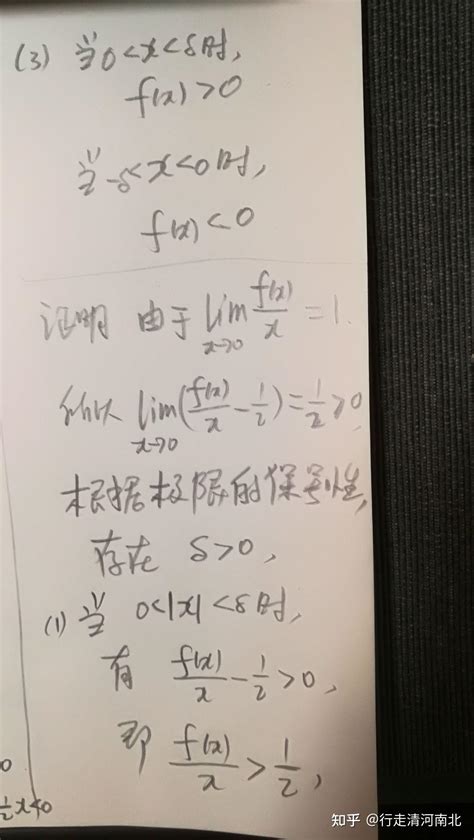 (3) 当0<x<δ时,
f(x)>0
当-δ<x<0时,
f(x)<0
证明 由于 lim_{x→0} f(x)/x = 1.
所以 lim_{x→0} (f(x)/x - 1/2) = 1/2 > 0,
根据极限的保号性,
存在 δ>0,
(1) 当 0<|x|<δ时,
有 f(x)/x - 1/2 > 0,
即 f(x)/x > 1/2,
知乎 @行走清河南北